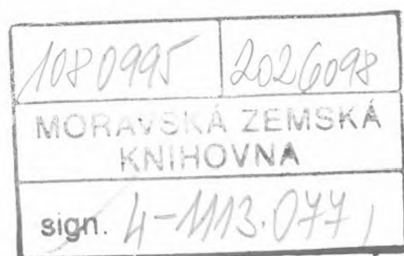 1080995 2026098
MORAVSKÁ ZEMSKÁ
KNIHOVNA
sign. 4-1113.077,